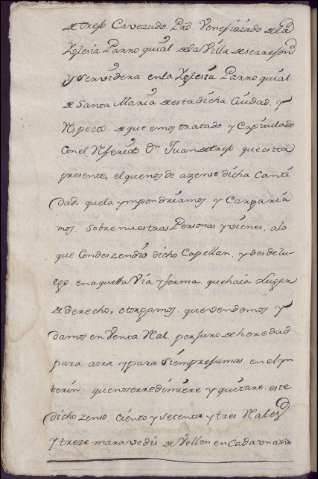 de trejo Cavezudo Pro Venefiziado de la
Yglesia Parroquial de la Villa de
y servidera en la Yglesia Parroquial
de Santa Maria de esta dicha Ciudad, y
Respecto de que emos tratado y Capitulado
Con el Referido Dn Juan de trejo que esta
presente, el que nos de a zenso dicha Canti
dad que la ympondriamos y Cargaria
mos sobre nuestras Personas y vienes, a lo
que Condeszendio dicho Capellan, y desde lu
ego en aquella Via y forma que haia Lugar
de derecho, otorgamos, que vendemos y
damos en Venta Real por juro de heredad
para aora y para siempre jamas en el yn
terin que no se redimiere y quitare este
dicho zenso Ciento y sesenta y tres Reales
y treze maravedis de Vellon en Cada un año